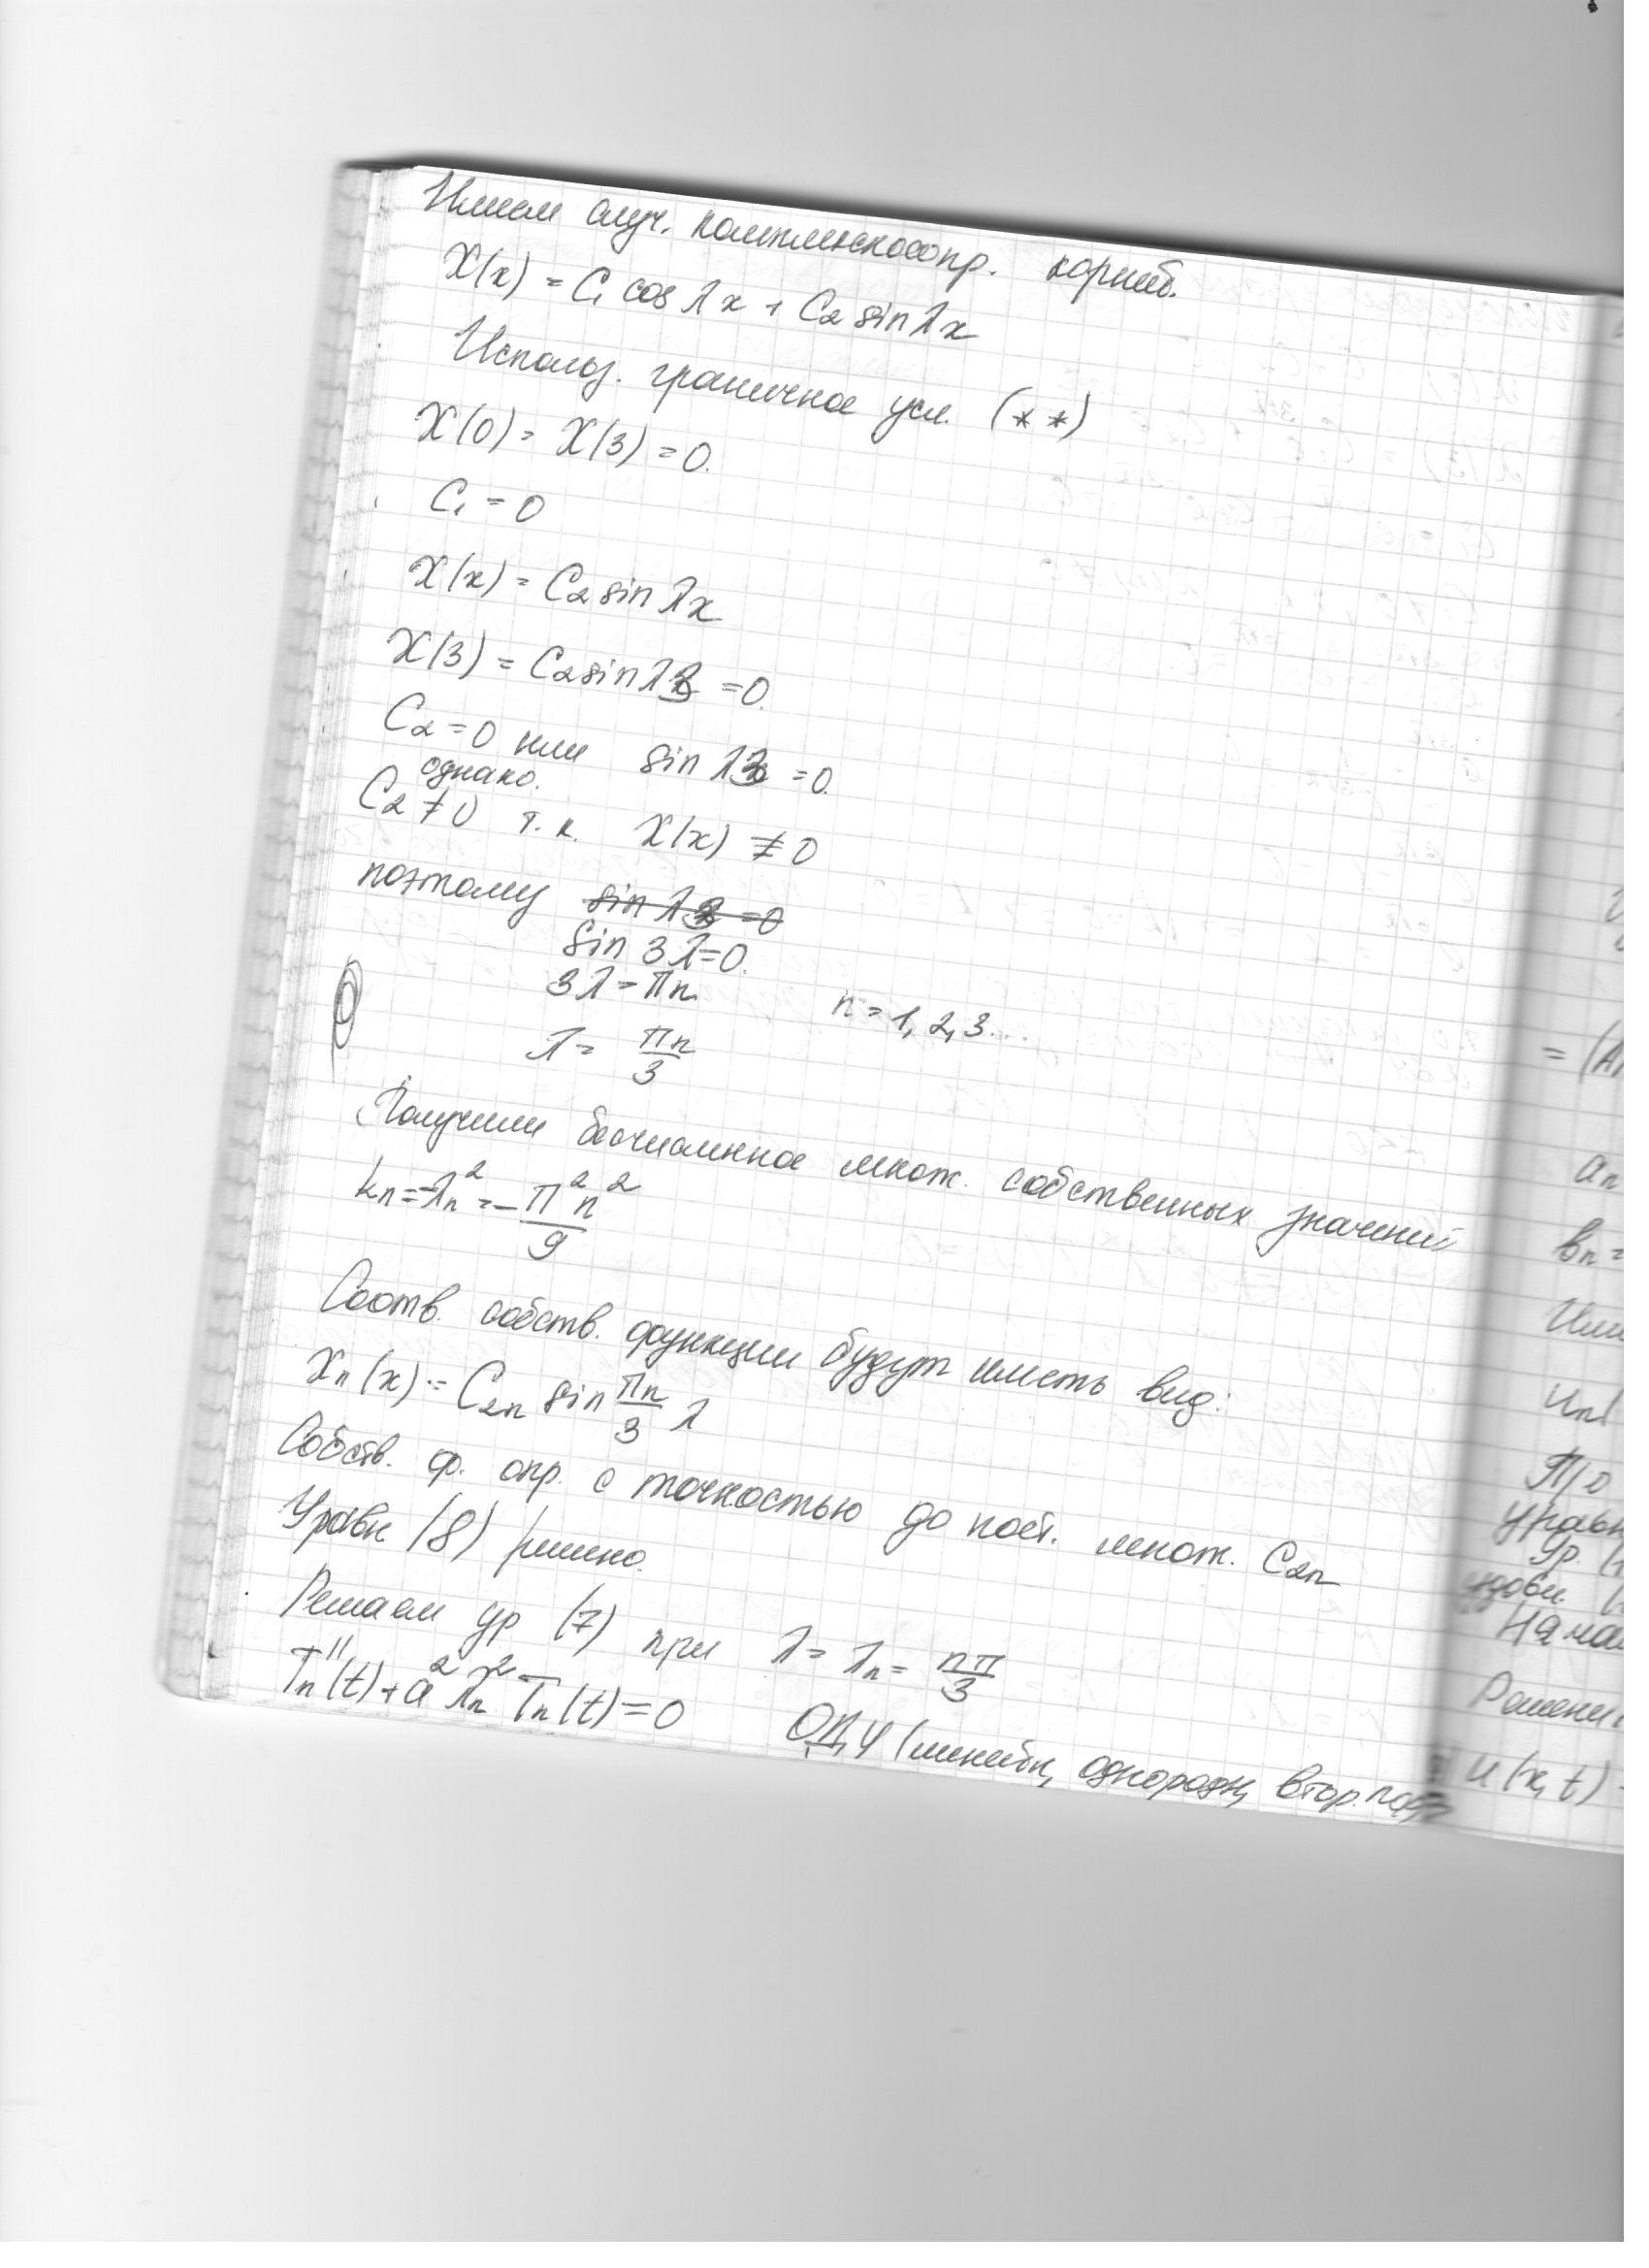 Имеем случ. комплексносопр. корней.
X(x) = C₁ cos λx + C₂ sin λx
Использ. граничное усл. (**)
X(0) = X(3) = 0.
C₁ = 0
X(x) = C₂ sin λx
X(3) = C₂ sin λ3 = 0.
C₂ = 0 или sin λ3 = 0.
однако.
C₂ ≠ 0 т.к. X(x) ≠ 0
поэтому sin λ3 = 0
sin 3λ = 0.
3λ = πn n = 1, 2, 3...
λ = πn/3
Получили бесчисленное множ. собственных значений
kₙ = -λₙ² = -π²n²/9
Соотв. собств. функции будут иметь вид:
Xₙ(x) = C₂ₙ sin πn/3 λ
Собств. ф. опр. с точностью до пост. множ. C₂ₙ
Уравн (8) решено.
Решаем ур (7) при λ = λₙ = nπ/3
Tₙ''(t) + a²λₙ² Tₙ(t) = 0 ОДУ (линейн, однородн, втор. пор
= (A
aₙ
bₙ =
Uₙ(
Уравн
ур. (
На
Решени
u(x, t)